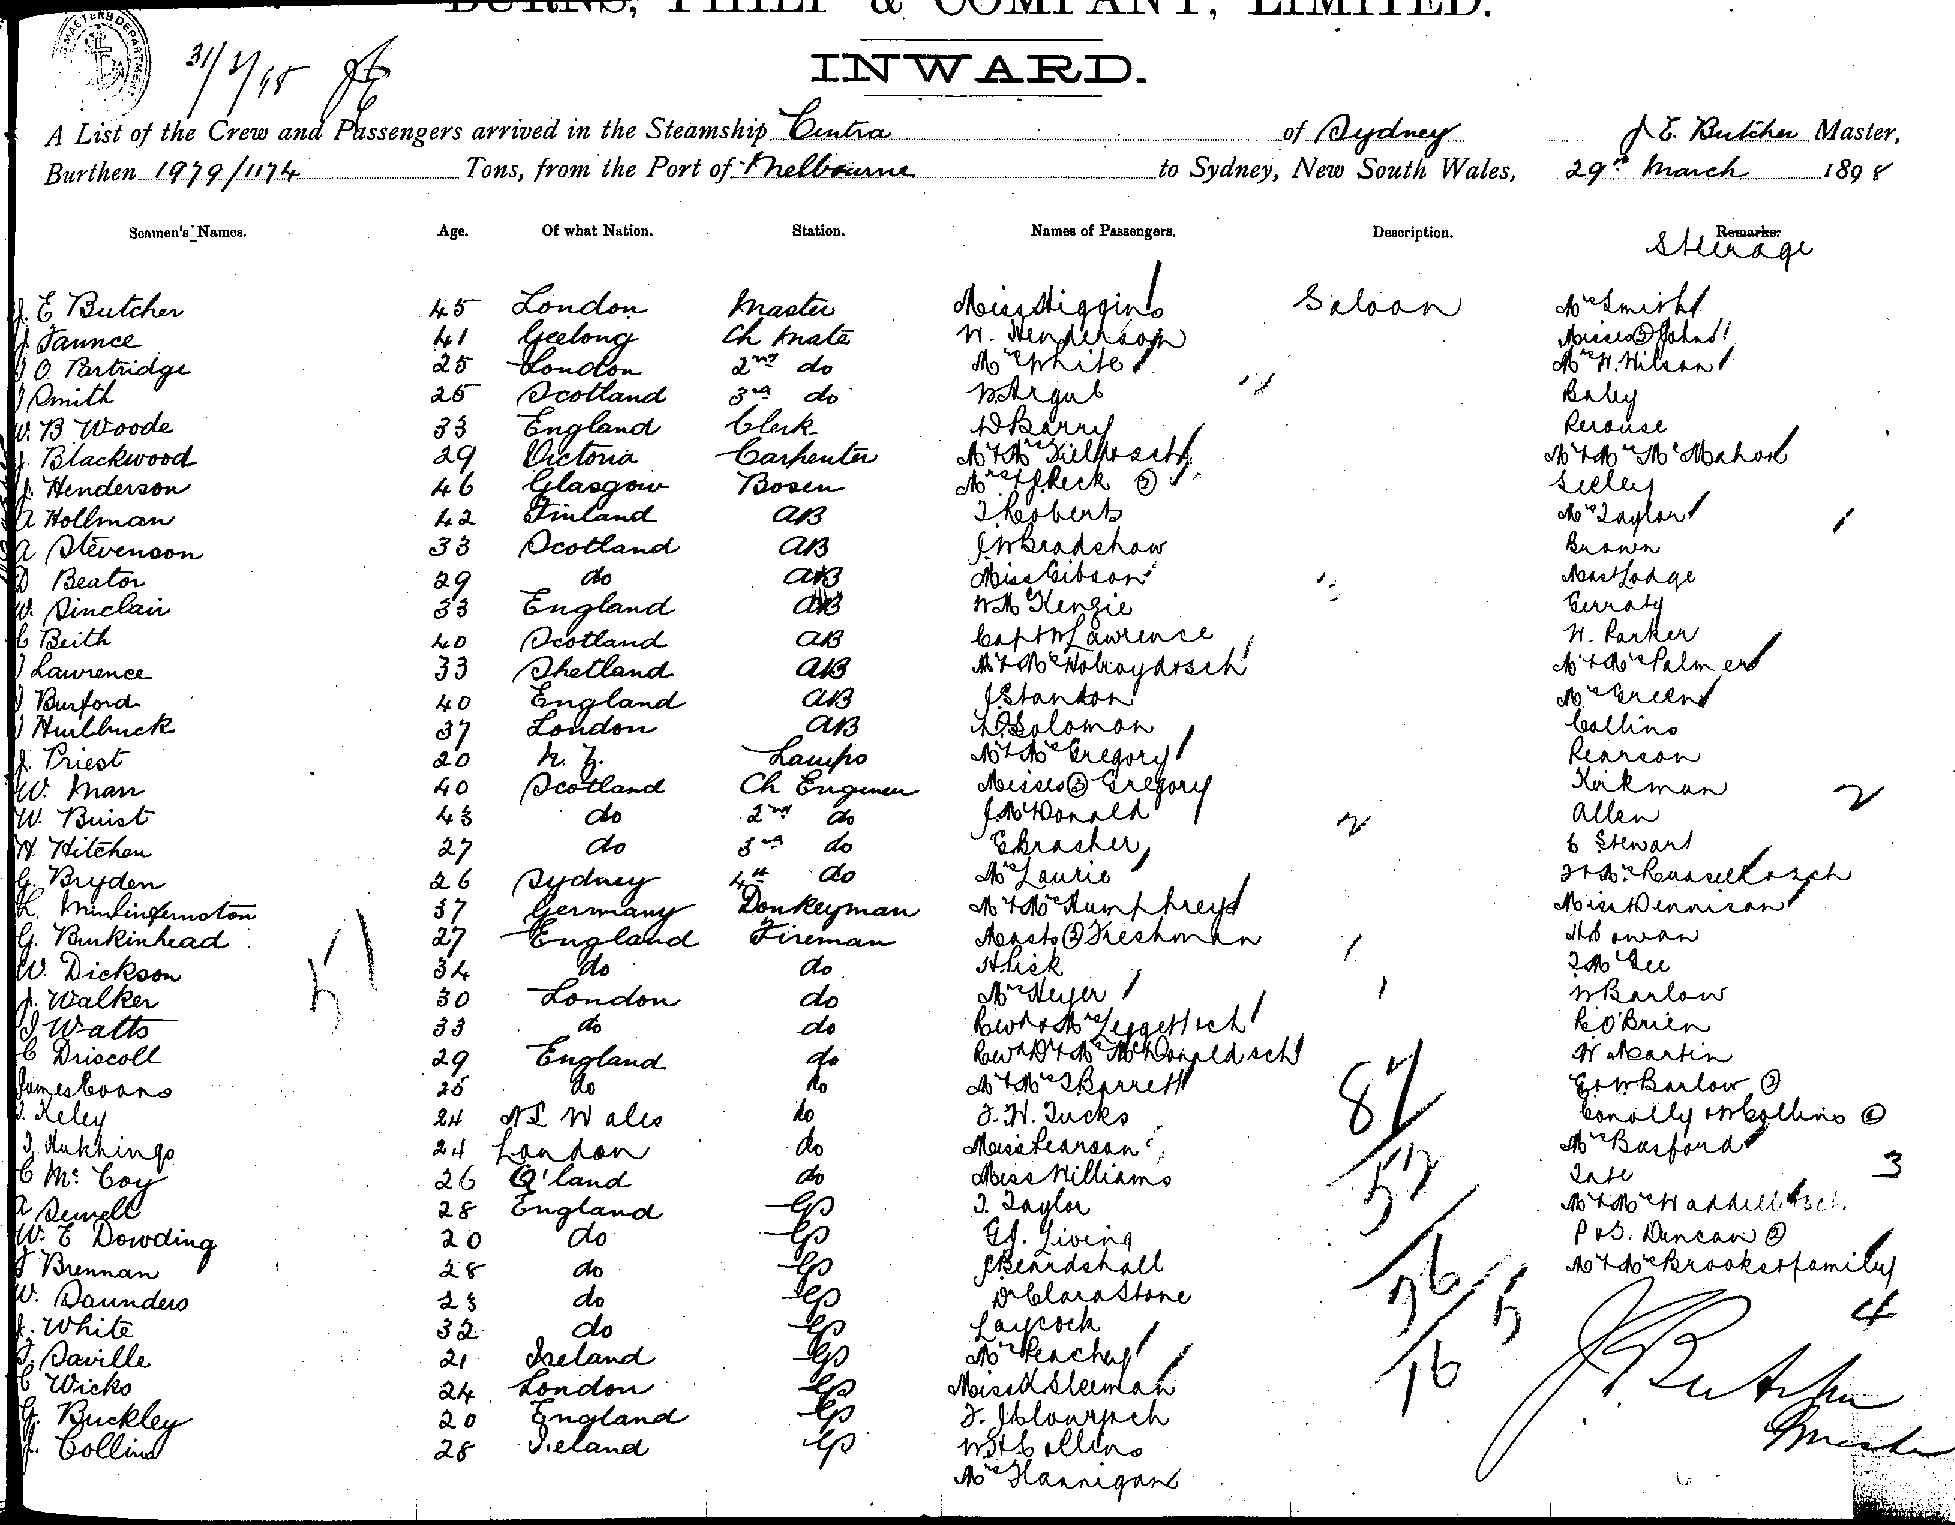 BURNS, PHILP & COMPANY, LIMITED.
INWARD.
A List of the Crew and Passengers arrived in the Steamship Cintra of Sydney J E. Butcher Master,
Burthen 1979/1174 Tons, from the Port of Melbourne to Sydney, New South Wales, 29th March 1898
Seamen's Names. Age. Of what Nation. Station. Names of Passengers. Description. Remarks.
Steerage
J. E Butcher 45 London Master Miss Higgins Saloon Mrs Smith
J Faunce 41 Geelong Ch Mate W. Henderson Misses (2) Johns
J O Partridge 25 London 2nd do Mrs White Mrs W. Wilson
J Smith 25 Scotland 3rd do W Argub Baley
W. B Woode 33 England Clerk D Barry Perouse
J. Blackwood 29 Victoria Carpenter Mr & Mrs Mr & Mrs McMahon
J. Henderson 46 Glasgow Bosen Peck (2) Seeley
A Hollman 42 Finland AB T Roberts Mrs Taylor
A Stevenson 33 Scotland AB J W Bradshaw Brown
D Beator 29 do AB Miss Gibson Mast Lodge
W. Sinclair 33 England AB W McKenzie Gerraty
C Beith 40 Scotland AB Capt W Lawrence W. Parker
J Lawrence 33 Shetland AB Mr & Mrs Holroyd & sch Mr & Mrs Palmer
J Burford 40 England AB J Stanton Mrs Green
J Hurlbuck 37 London AB Solomon Collins
J. Priest 20 N. Z. Lamps Mr & Mrs Gregory Pearson
W. Man 40 Scotland Ch Engineer Misses (2) Gregory Kirkman 2
W Buist 43 do 2nd do J McDonald 2 Allen
H Hitchen 27 do 3rd do E Brasher C Stewart
G Bryden 26 Sydney 4th do Mrs Laurie & Mrs Russell & sch
37 Germany Donkeyman Mr & Mrs Humphreys Miss Dennison
G. Burkinhead 27 England Fireman Mast (2) Freshman
W. Dickson 34 do do H Lisk T McGee
J. Walker 30 London do Mrs Heyer W Barlow
J Watts 33 do do Revd & Mrs Leggett & sch R O'Brien
C Driscoll 29 England do Revd D & Mrs McDonald & sch W Martin
James Evans 25 do do Mr & Mrs J Barrett E & W Barlow (2)
J. Keley 24 N S Wales do J. H. Tucks Conolly & W Collins (2)
24 London do Miss Pearson Mrs Basford
C McCoy 26 Q'land do Miss Williams Tate 3
A Sewell 28 England T. Taylor Mr & Mrs Waddell & sch
W. E Dowding 20 do G J. Living P & S. Duncan (2)
J Brennan 28 do J Beardshall Mr & Mrs Brooks & family
W. Saunders 23 do Dr Clara Stone
J. White 32 do Laycock 4
J. Saville 21 Ireland Mrs Peachey 16
C Wicks 24 London Miss K Sleeman J Butcher
G. Buckley 20 England Master
J. Collins 28 Ireland W H Collins
Mrs Hannigan